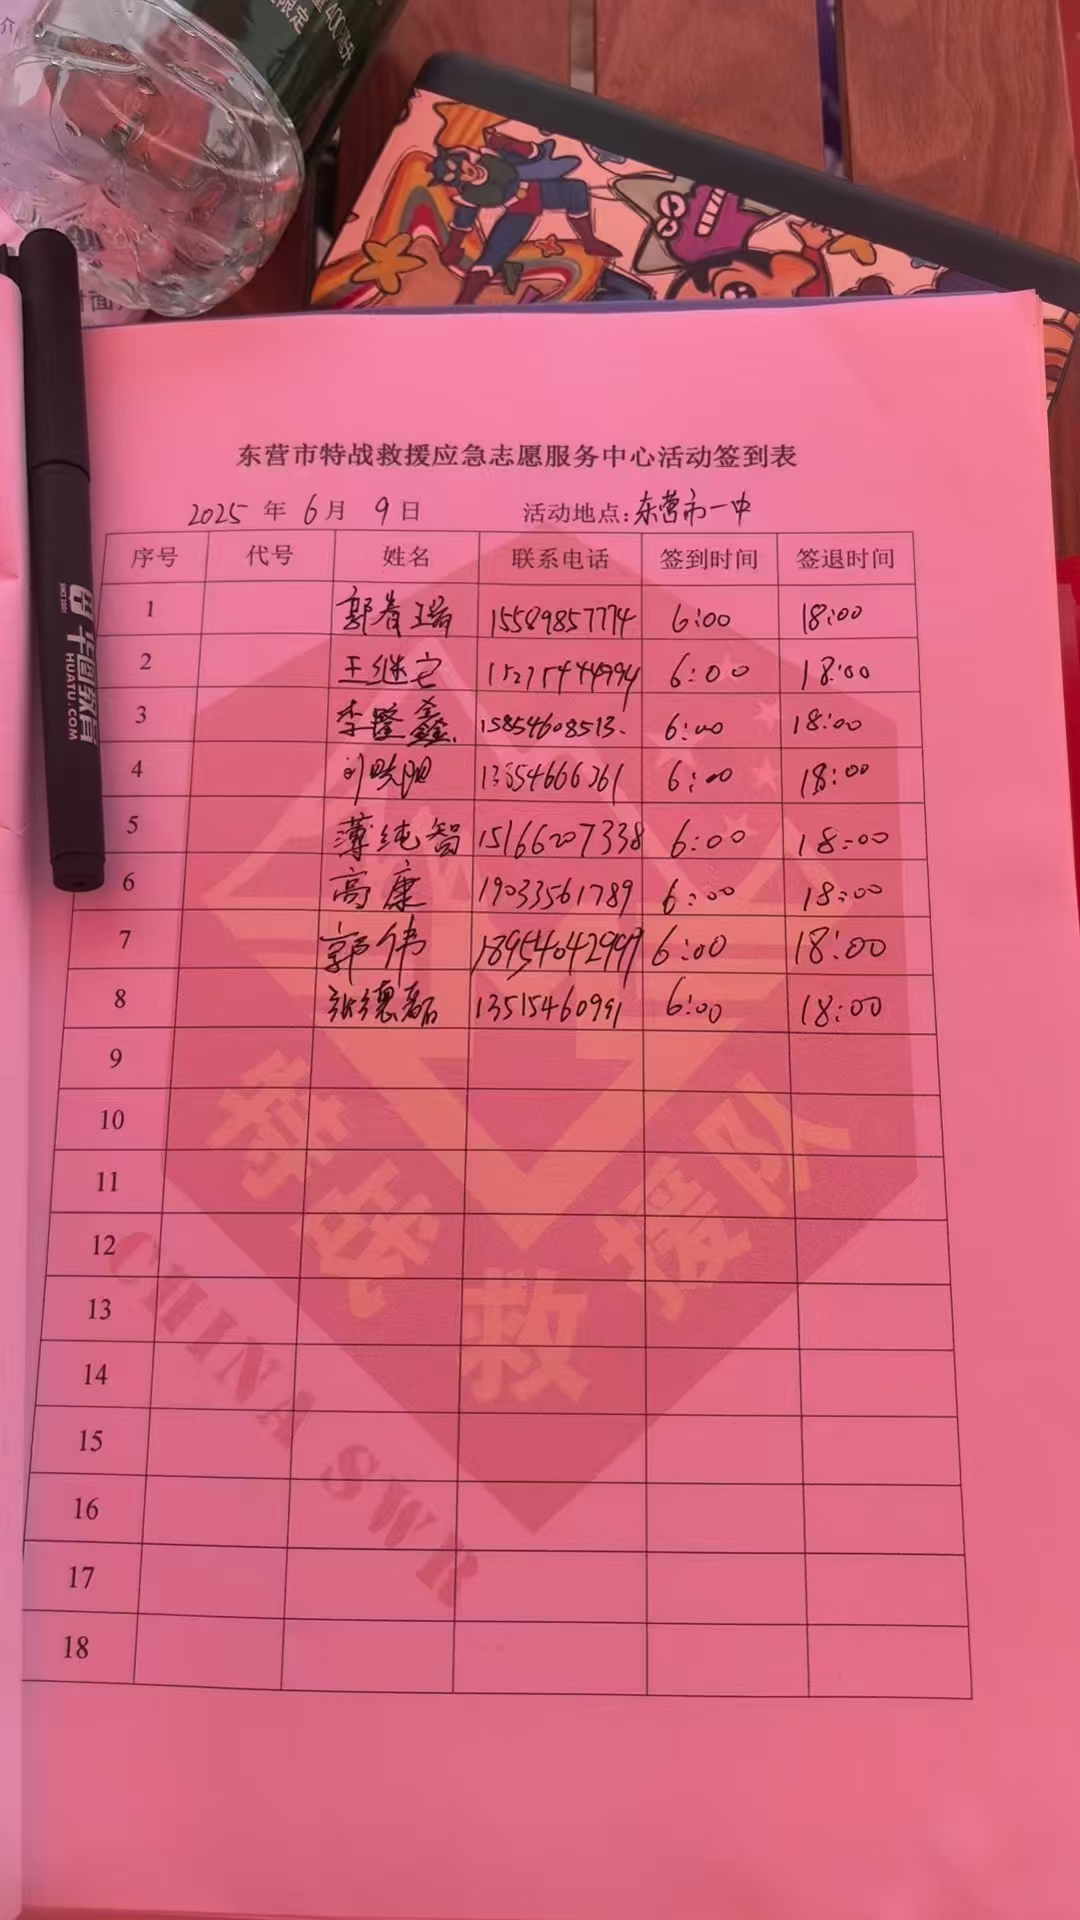 限定
东营市特战救援应急志愿服务中心活动签到表
2025 年 6月 9日 活动地点:东营市一中
序号 代号 姓名 联系电话 签到时间 签退时间
1 郭春瑞 15589857774 6:00 18:00
2 王继 6:00 18:00
3 李隆鑫 15854608513. 6:00 18:00
4 刘 6:00 18:00
5 薄纯智 15166207338 6:00 18:00
6 高康 19033561789 6:00 18:00
7 郭伟 18954042999 6:00 18:00
8 张德磊 13515460991 6:00 18:00
9
10
11
12
13
14
15
16
17
18
特战救援队
CHINA SWR
华图教育
HUATU.COM
SINCE 2001